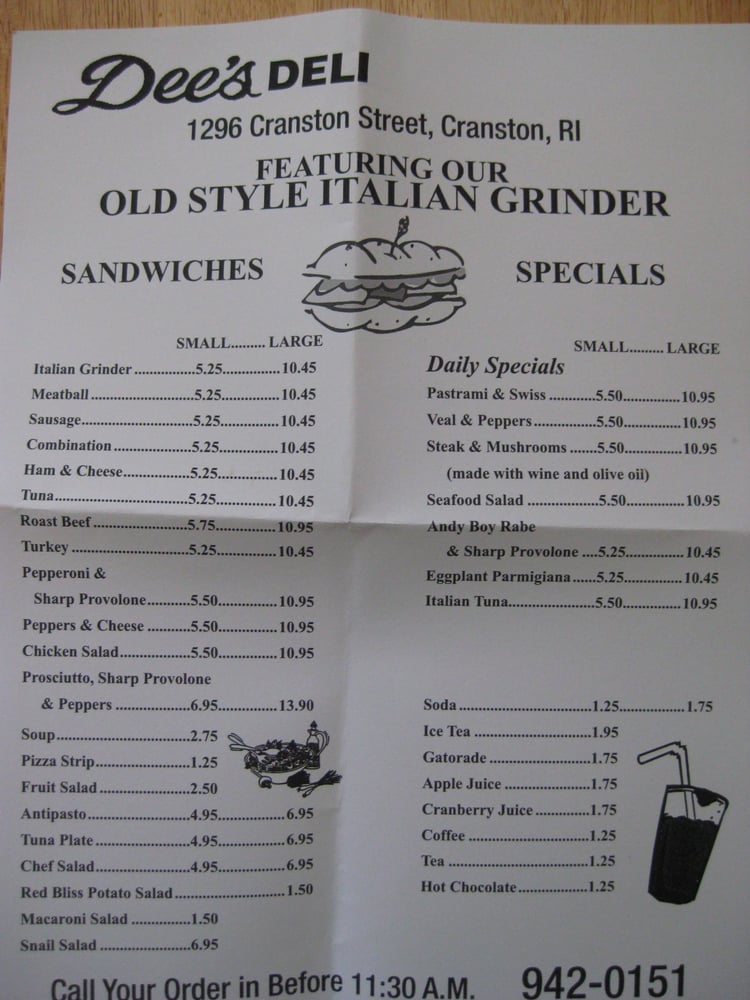 Dee's DELI
1296 Cranston Street, Cranston, RI
FEATURING OUR
OLD STYLE ITALIAN GRINDER
SANDWICHES
SMALL......... LARGE
Italian Grinder ...............5.25..............10.45
Meatball ..........................5.25..............10.45
Sausage............................5.25..............10.45
Combination ....................5.25..............10.45
Ham & Cheese.................5.25..............10.45
Tuna.................................5.25..............10.45
Roast Beef .......................5.75..............10.95
Turkey .............................5.25..............10.45
Pepperoni &
Sharp Provolone...........5.50..............10.95
Peppers & Cheese ...........5.50..............10.95
Chicken Salad..................5.50..............10.95
Prosciutto, Sharp Provolone
& Peppers ...................6.95..............13.90
Soup.................................2.75
Pizza Strip........................1.25
Fruit Salad .......................2.50
Antipasto..........................4.95..............6.95
Tuna Plate ........................4.95..............6.95
Chef Salad........................4.95..............6.95
Red Bliss Potato Salad...........................1.50
Macaroni Salad ...............1.50
Snail Salad .......................6.95
SPECIALS
SMALL......... LARGE
Daily Specials
Pastrami & Swiss ............5.50..............10.95
Veal & Peppers................5.50..............10.95
Steak & Mushrooms .......5.50..............10.95
(made with wine and olive oil)
Seafood Salad ..................5.50..............10.95
Andy Boy Rabe
& Sharp Provolone ....5.25..............10.45
Eggplant Parmigiana......5.25..............10.45
Italian Tuna.....................5.50..............10.95
Soda.................................1.25...............1.75
Ice Tea .............................1.95
Gatorade .........................1.75
Apple Juice ......................1.75
Cranberry Juice ..............1.75
Coffee ..............................1.25
Tea ...................................1.25
Hot Chocolate..................1.25
Call Your Order in Before 11:30 A.M. 942-0151